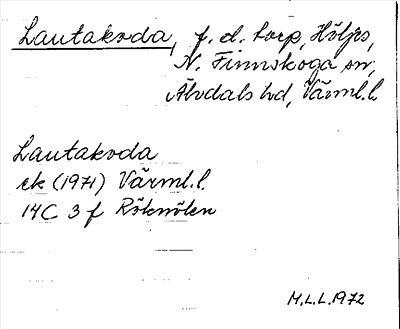 Lautakoda, f. d. torp, Höljes,
N. Finnskoga sn,
Älvdals hd, Värml. l.
Lautakoda
ek (1971) Värml. l.
14C 3 f Röknölen
M.L.L. 1972